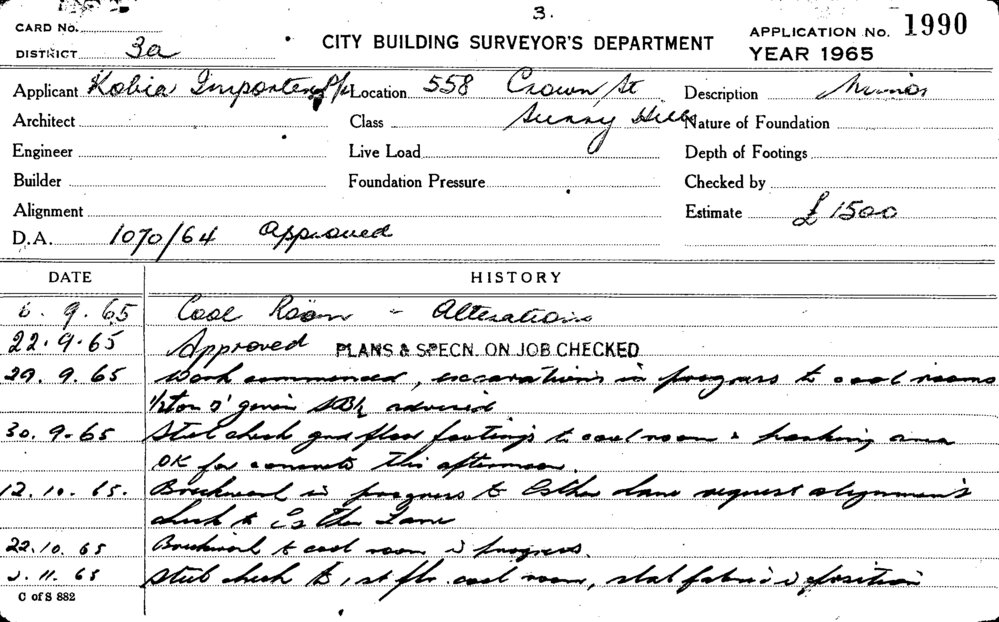 3.
CARD No.
DISTRICT 3a
CITY BUILDING SURVEYOR'S DEPARTMENT
APPLICATION No. 1990
YEAR 1965
Applicant Kobia Importers P/L Location 558 Crown St. Description Minor
Architect Class Surry Hills Nature of Foundation
Engineer Live Load Depth of Footings
Builder Foundation Pressure Checked by
Alignment Estimate £ 1500
D.A. 1070/64 Approved
DATE HISTORY
6. 9. 65 Cool Room - Alterations
22. 9. 65 Approved PLANS & SPECN. ON JOB CHECKED
29. 9. 65 Work commenced, excavations in progress to cool rooms
advised
30. 9. 65 Steel check gnd floor footings to cool room & parking area
OK for concrete this afternoon.
12. 10. 65. Brickwork in progress to Esther Lane request alignment's
check to Esther Lane
22. 10. 65 Brickwork to cool room in progress.
11. 65 Steel check to 1st flr. cool room, slab fabric in position
C of S 882